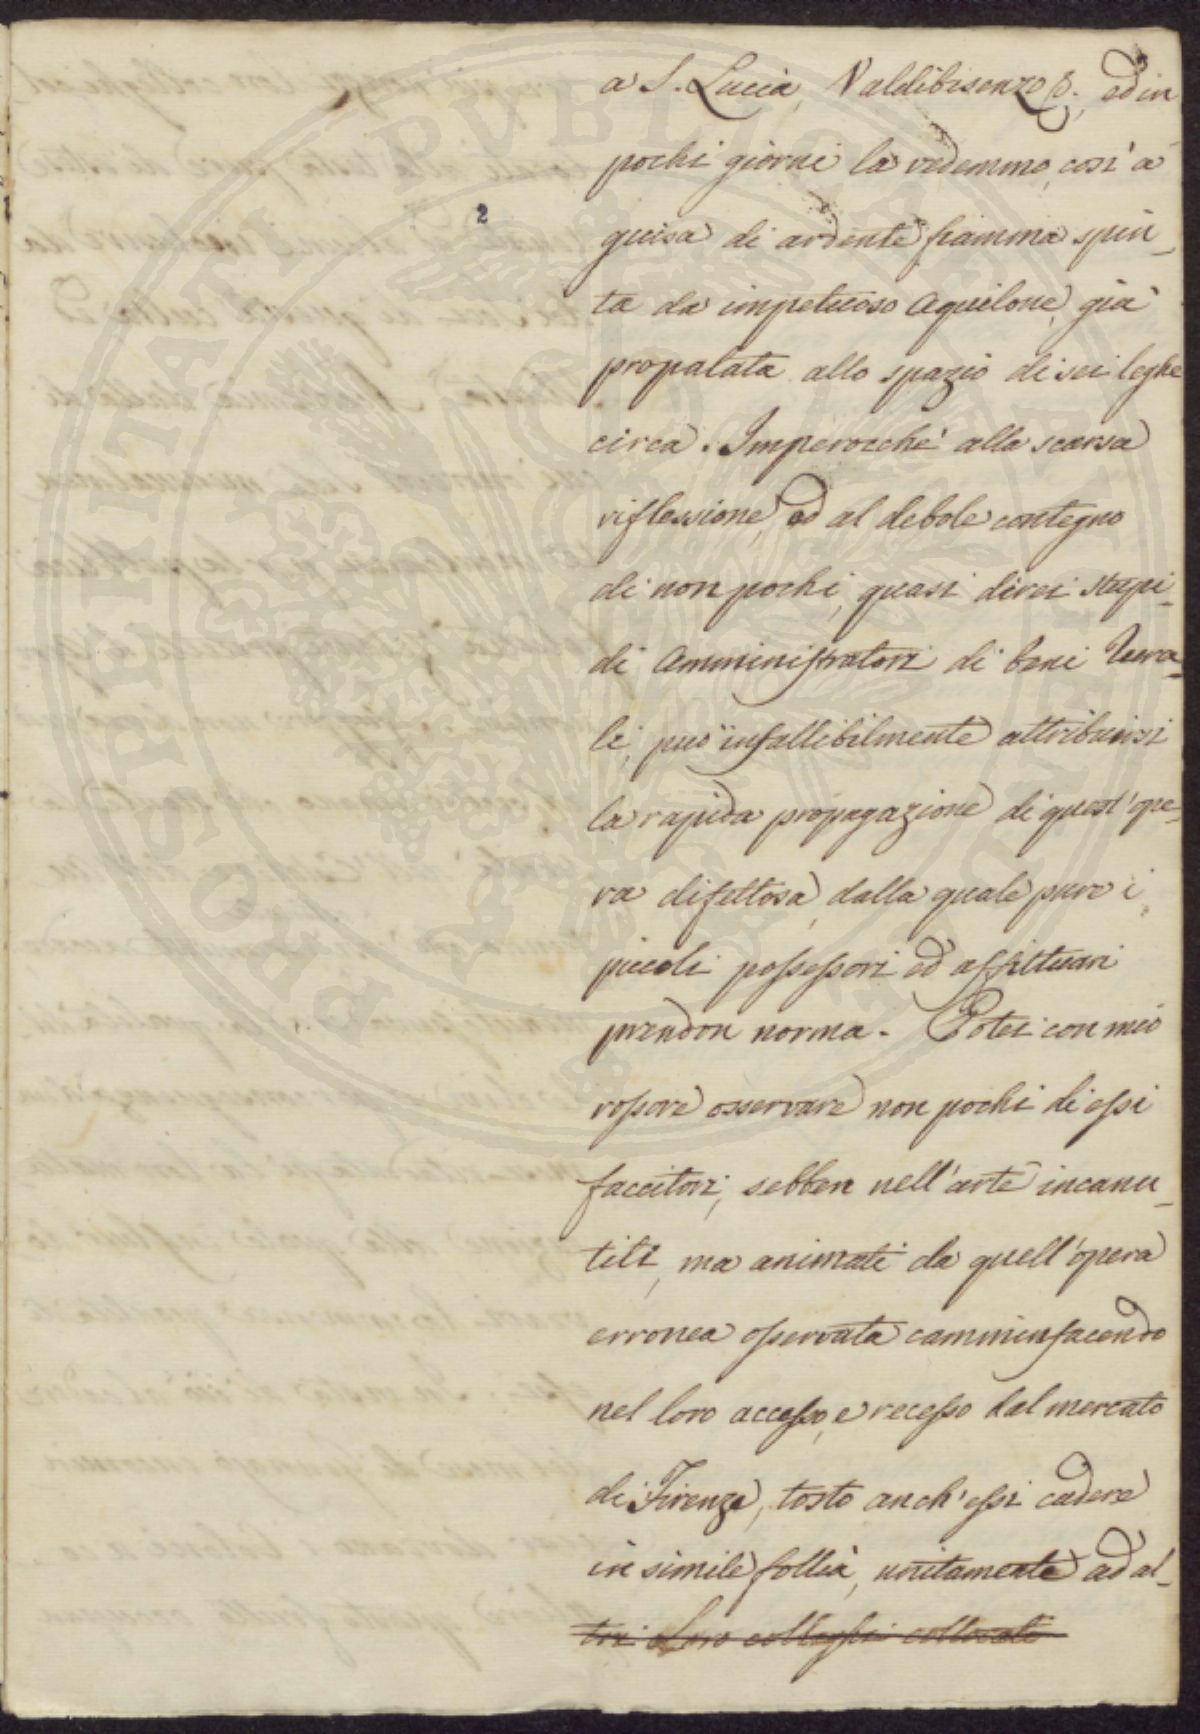 a S. Lucia, Valdibisenzo &; ed in
pochi giorni la vedemmo, cosi' a
2
guisa di ardente fiamma spin-
ta da impetuoso Aquilone, già
propalata allo spazio di sei leghe
circa. Imperocche' alla scarsa
riflessione, ed al debole contegno
di non pochi, quasi direi stupi-
di Amministratori di beni Rura-
li, può infallibilmente attribuirsi
la rapida propagazione di quest'ope-
ra difettosa, dalla quale pure i
piccoli possessori ed affittuari
prendon norma. Potei con mio
rossore osservare non pochi di essi
faccitori, sebben nell'arte incanu-
titi, ma animati da quell'opera
erronea osservata camminfacendo
nel loro accesso, e recesso dal mercato
di Firenze, tosto anch'essi cadere
in simile follia, unitamente ad al-
tri Loro colleghi collocati